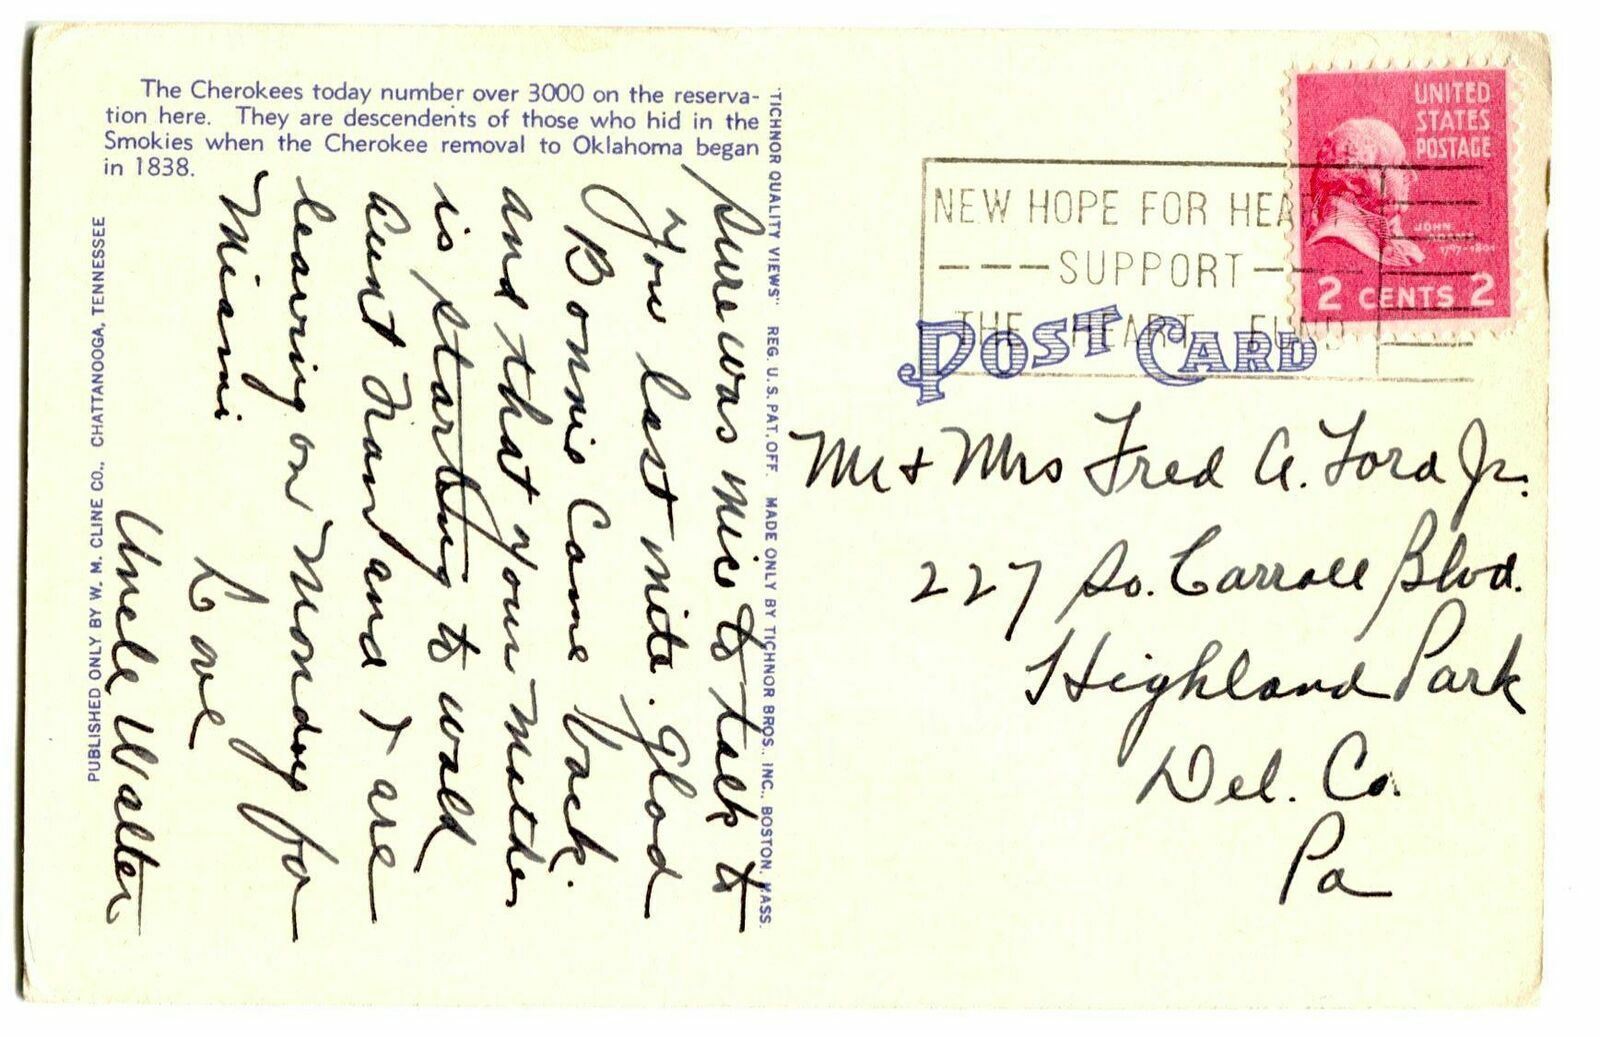 The Cherokees today number over 3000 on the reserva-
tion here. They are descendents of those who hid in the
Smokies when the Cherokee removal to Oklahoma began
in 1838.
PUBLISHED ONLY BY W. M. CLINE CO., CHATTANOOGA, TENNESSEE
"TICHNOR QUALITY VIEWS" REG. U.S. PAT. OFF. MADE ONLY BY TICHNOR BROS., INC., BOSTON, MASS.
Sure was nice to talk to
you last nite. Glad
Bonnie Came back.
and that your mother
is starting to walk
Aunt Fran and I are
leaving on Monday for
Miami
Love
Uncle Walter
UNITED
STATES
POSTAGE
JOHN
ADAMS
1797-1801
2 CENTS 2
NEW HOPE FOR HEA
SUPPORT
THE HEART FUND
POST CARD
Mr + Mrs Fred A. Ford Jr.
227 So. Carroll Blvd.
Highland Park
Del. Co.
Pa